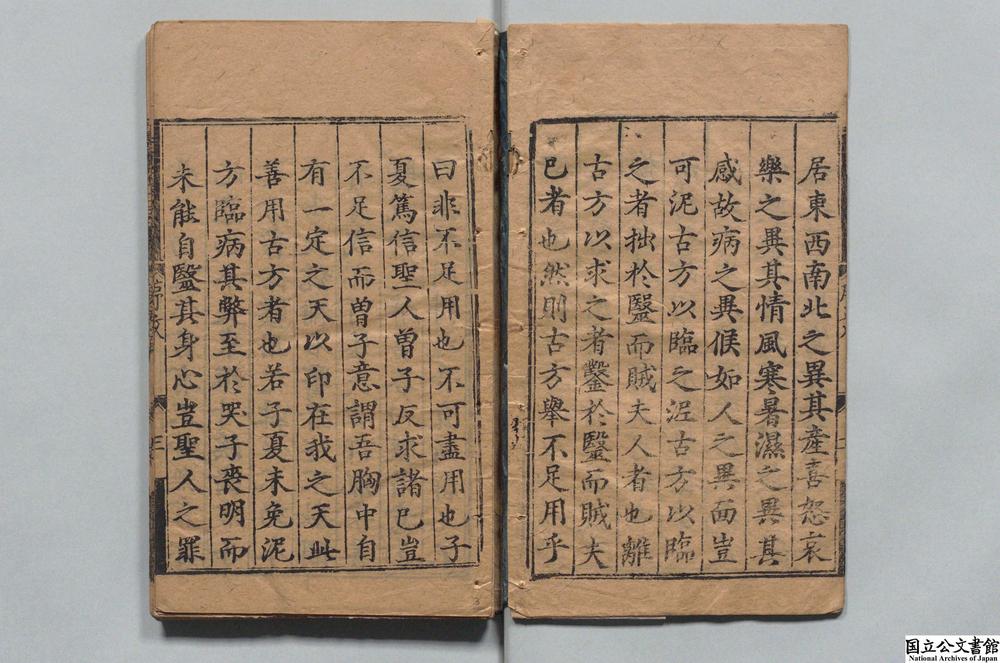 居東西南北之異其產喜怒哀
樂之異其情風寒暑濕之異其
感故病之異候如人之異面豈
可泥古方以臨之泥古方以臨
之者拙於毉而賊夫人者也離
古方以求之者鑿於毉而賊夫
已者也然則古方舉不足用乎
曰非不足用也不可盡用也子
夏篤信聖人曽子反求諸已豈
不足信而曽子意謂吾胸中自
有一定之天以印在我之天此
善用古方者也若子夏未免泥
方臨病其弊至於哭子喪明而
未能自毉其身心豈聖人之罪
国立公文書館
National Archives of Japan